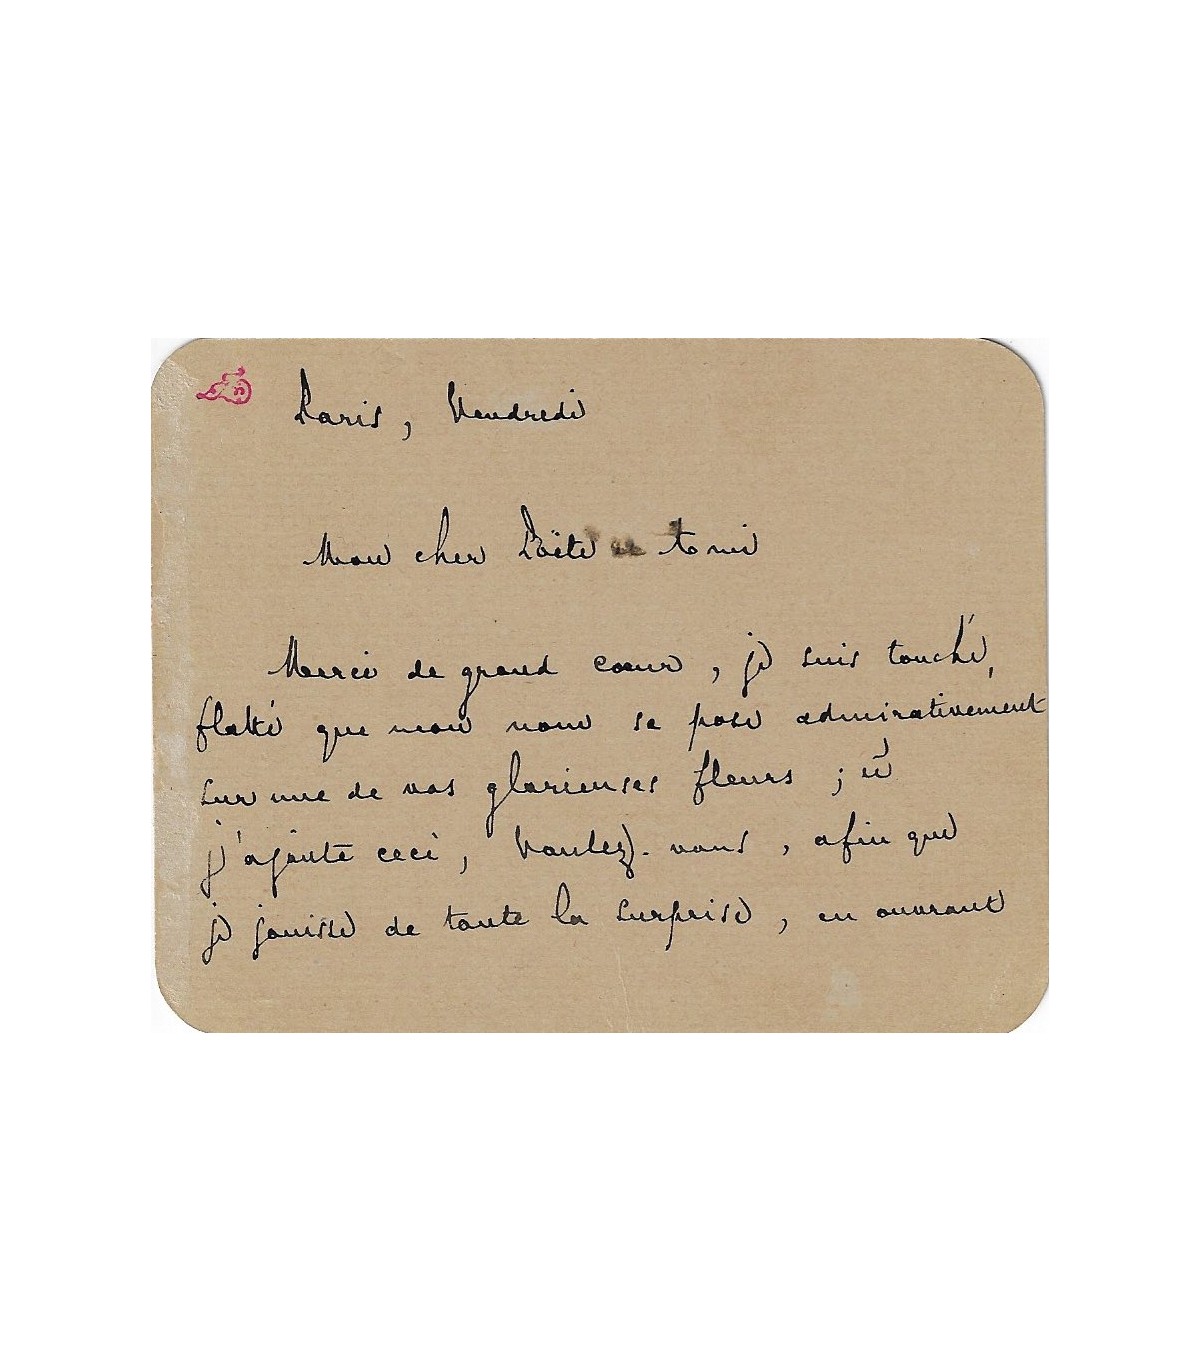 Paris, Vendredi
Mon cher Poëte et Ami
Merci de grand cœur, je suis touché,
flatté que mon nom se pose admirativement
sur une de vos glorieuses fleurs ; et
j'ajoute ceci, voulez-vous, afin que
je jouisse de toute la surprise, en ouvrant